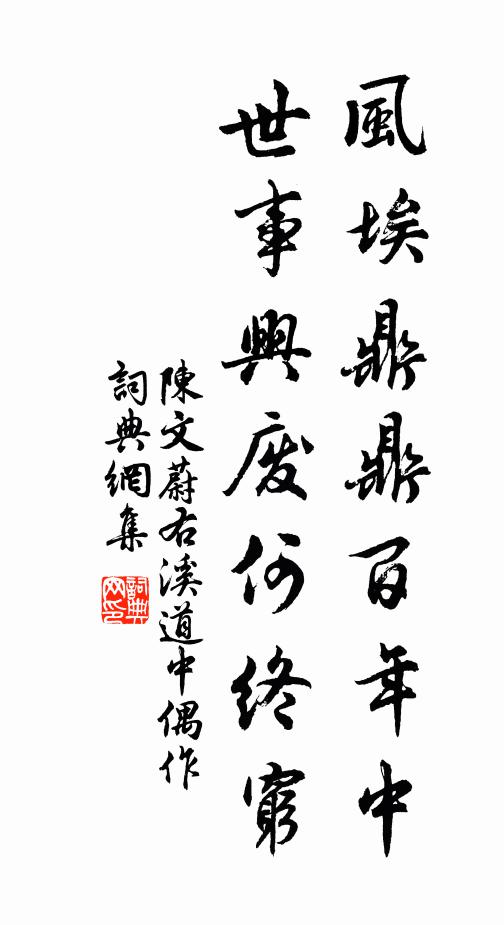 風埃鼎鼎百年中
世事興廢何終窮
陳文蔚右溪道中偶作
詞典網集
詞典網印